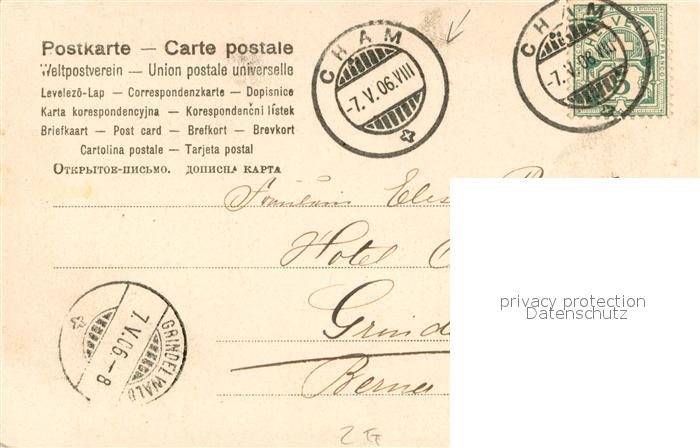 Postkarte — Carte postale
Weltpostverein — Union postale universelle
Levelező-Lap — Correspondenzkarte — Dopisnice
Karta korespondencyjna — Korespondenční lístek
Briefkaart — Post card — Brefkort — Brevkort
Cartolina postale — Tarjeta postal
Открытое-письмо. дописна карта
CHAM
-7.V.06.VIII
CHAM
-7.V.06.VIII
5
Fräulein Elis
Hotel
Grind
Berner
GRINDELWALD
7.V.06-8
privacy protection
Datenschutz